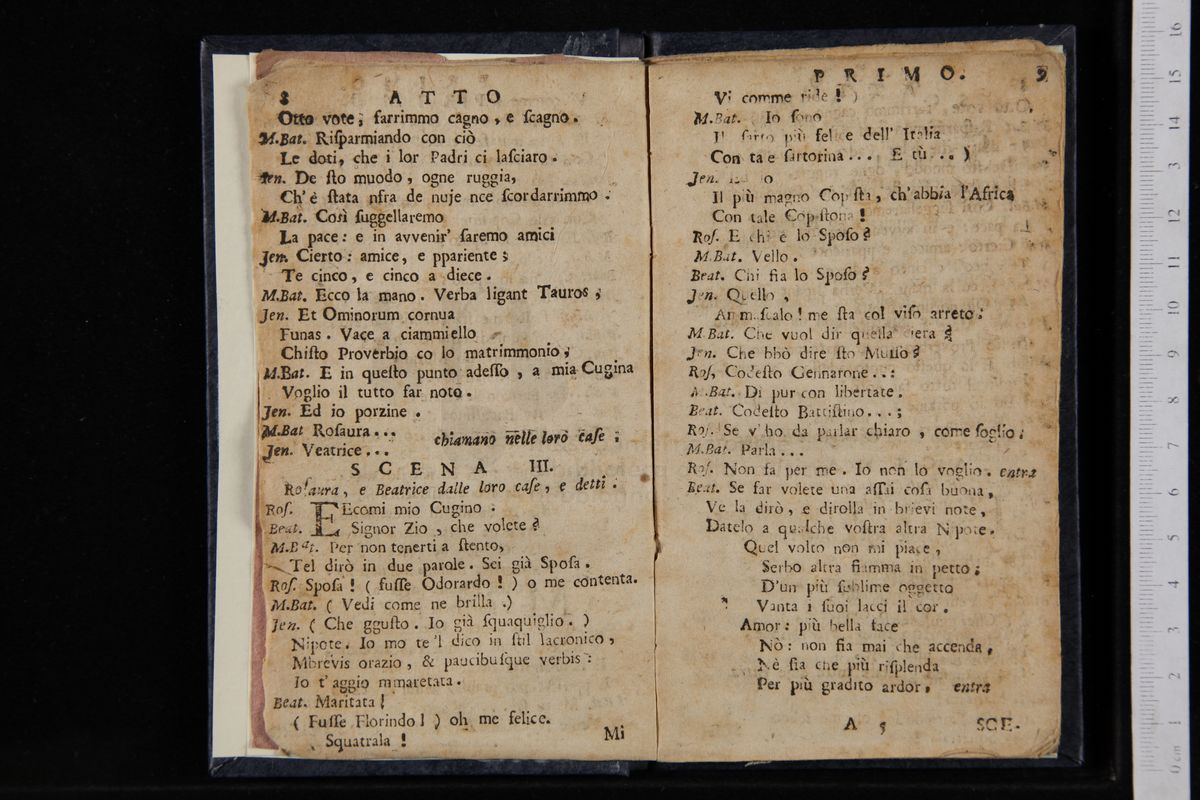 8 ATTO
Otto vote; farrimmo cagno, e ſcagno.
M.Bat. Riſparmiando con ciò
Le doti, che i lor Padri ci laſciaro.
Jen. De ſto muodo, ogne ruggia,
Ch'è ſtata nfra de nuje nce ſcordarrimmo.
M.Bat. Così ſuggellaremo
La pace: e in avvenir' ſaremo amici
Jen. Cierto: amice, e ppariente;
Te cinco, e cinco a diece.
M.Bat. Ecco la mano. Verba ligant Tauros;
Jen. Et Ominorum cornua
Funas. Vace a ciammiello
Chiſto Proverbio co lo matrimmonio;
M.Bat. E in queſto punto adeſſo, a mia Cugina
Voglio il tutto far noto.
Jen. Ed io porzine.
M.Bat Roſaura...
chiamano nelle loro caſe;
Jen. Veatrice...
SCENA III.
Roſaura, e Beatrice dalle loro caſe, e detti.
Roſ. EEcomi mio Cugino.
Beat. Signor Zio, che volete?
M.Bat. Per non tenerti a ſtento,
Tel dirò in due parole. Sei già Spoſa.
Roſ. Spoſa! (fuſſe Odorardo!) o me contenta.
M.Bat. (Vedi come ne brilla.)
Jen. (Che gguſto. Io già ſquaquiglio.)
Nipote. Io mo te 'l dico in ſtil lacronico,
Mbrevis orazio, & paucibuſque verbis:
Io t'aggio mmaretata.
Beat. Maritata!
(Fuſſe Florindo!) oh me felice.
Squatrala!
Mi
PRIMO. 9
Vi comme ride!)
M.Bat. Io ſono
Il ſarto più felice dell' Italia
Con tale ſartorina... E tù...)
Jen. io
Il più magno Copiſta, ch'abbia l'Africa
Con tale Copiſtona!
Roſ. E chi è lo Spoſo?
M.Bat. Vello.
Beat. Chi fia lo Spoſo?
Jen. Quello,
Ammaſcalo! me ſta col viſo arreto:
M.Bat. Che vuol dir quella ciera?
Jen. Che bbò dire ſto Muſſo?
Roſ, Codeſto Gennarone..:
M.Bat. Di pur con libertate.
Beat. Codeſto Battiſtino...;
Roſ. Se v'ho da parlar chiaro, come ſoglio:
M.Bat. Parla...
Roſ. Non fa per me. Io non lo voglio. entra
Beat. Se far volete una aſſai coſa buona,
Ve la dirò, e dirolla in brievi note,
Datelo a qualche voſtra altra Nipote.
Quel volto non mi piace,
Serbo altra fiamma in petto;
D'un più ſublime oggetto
Vanta i ſuoi lacci il cor.
Amor: più bella face
Nò: non fia mai che accenda,
Nè fia che più riſplenda
Per più gradito ardor, entra
A 5 SCE-